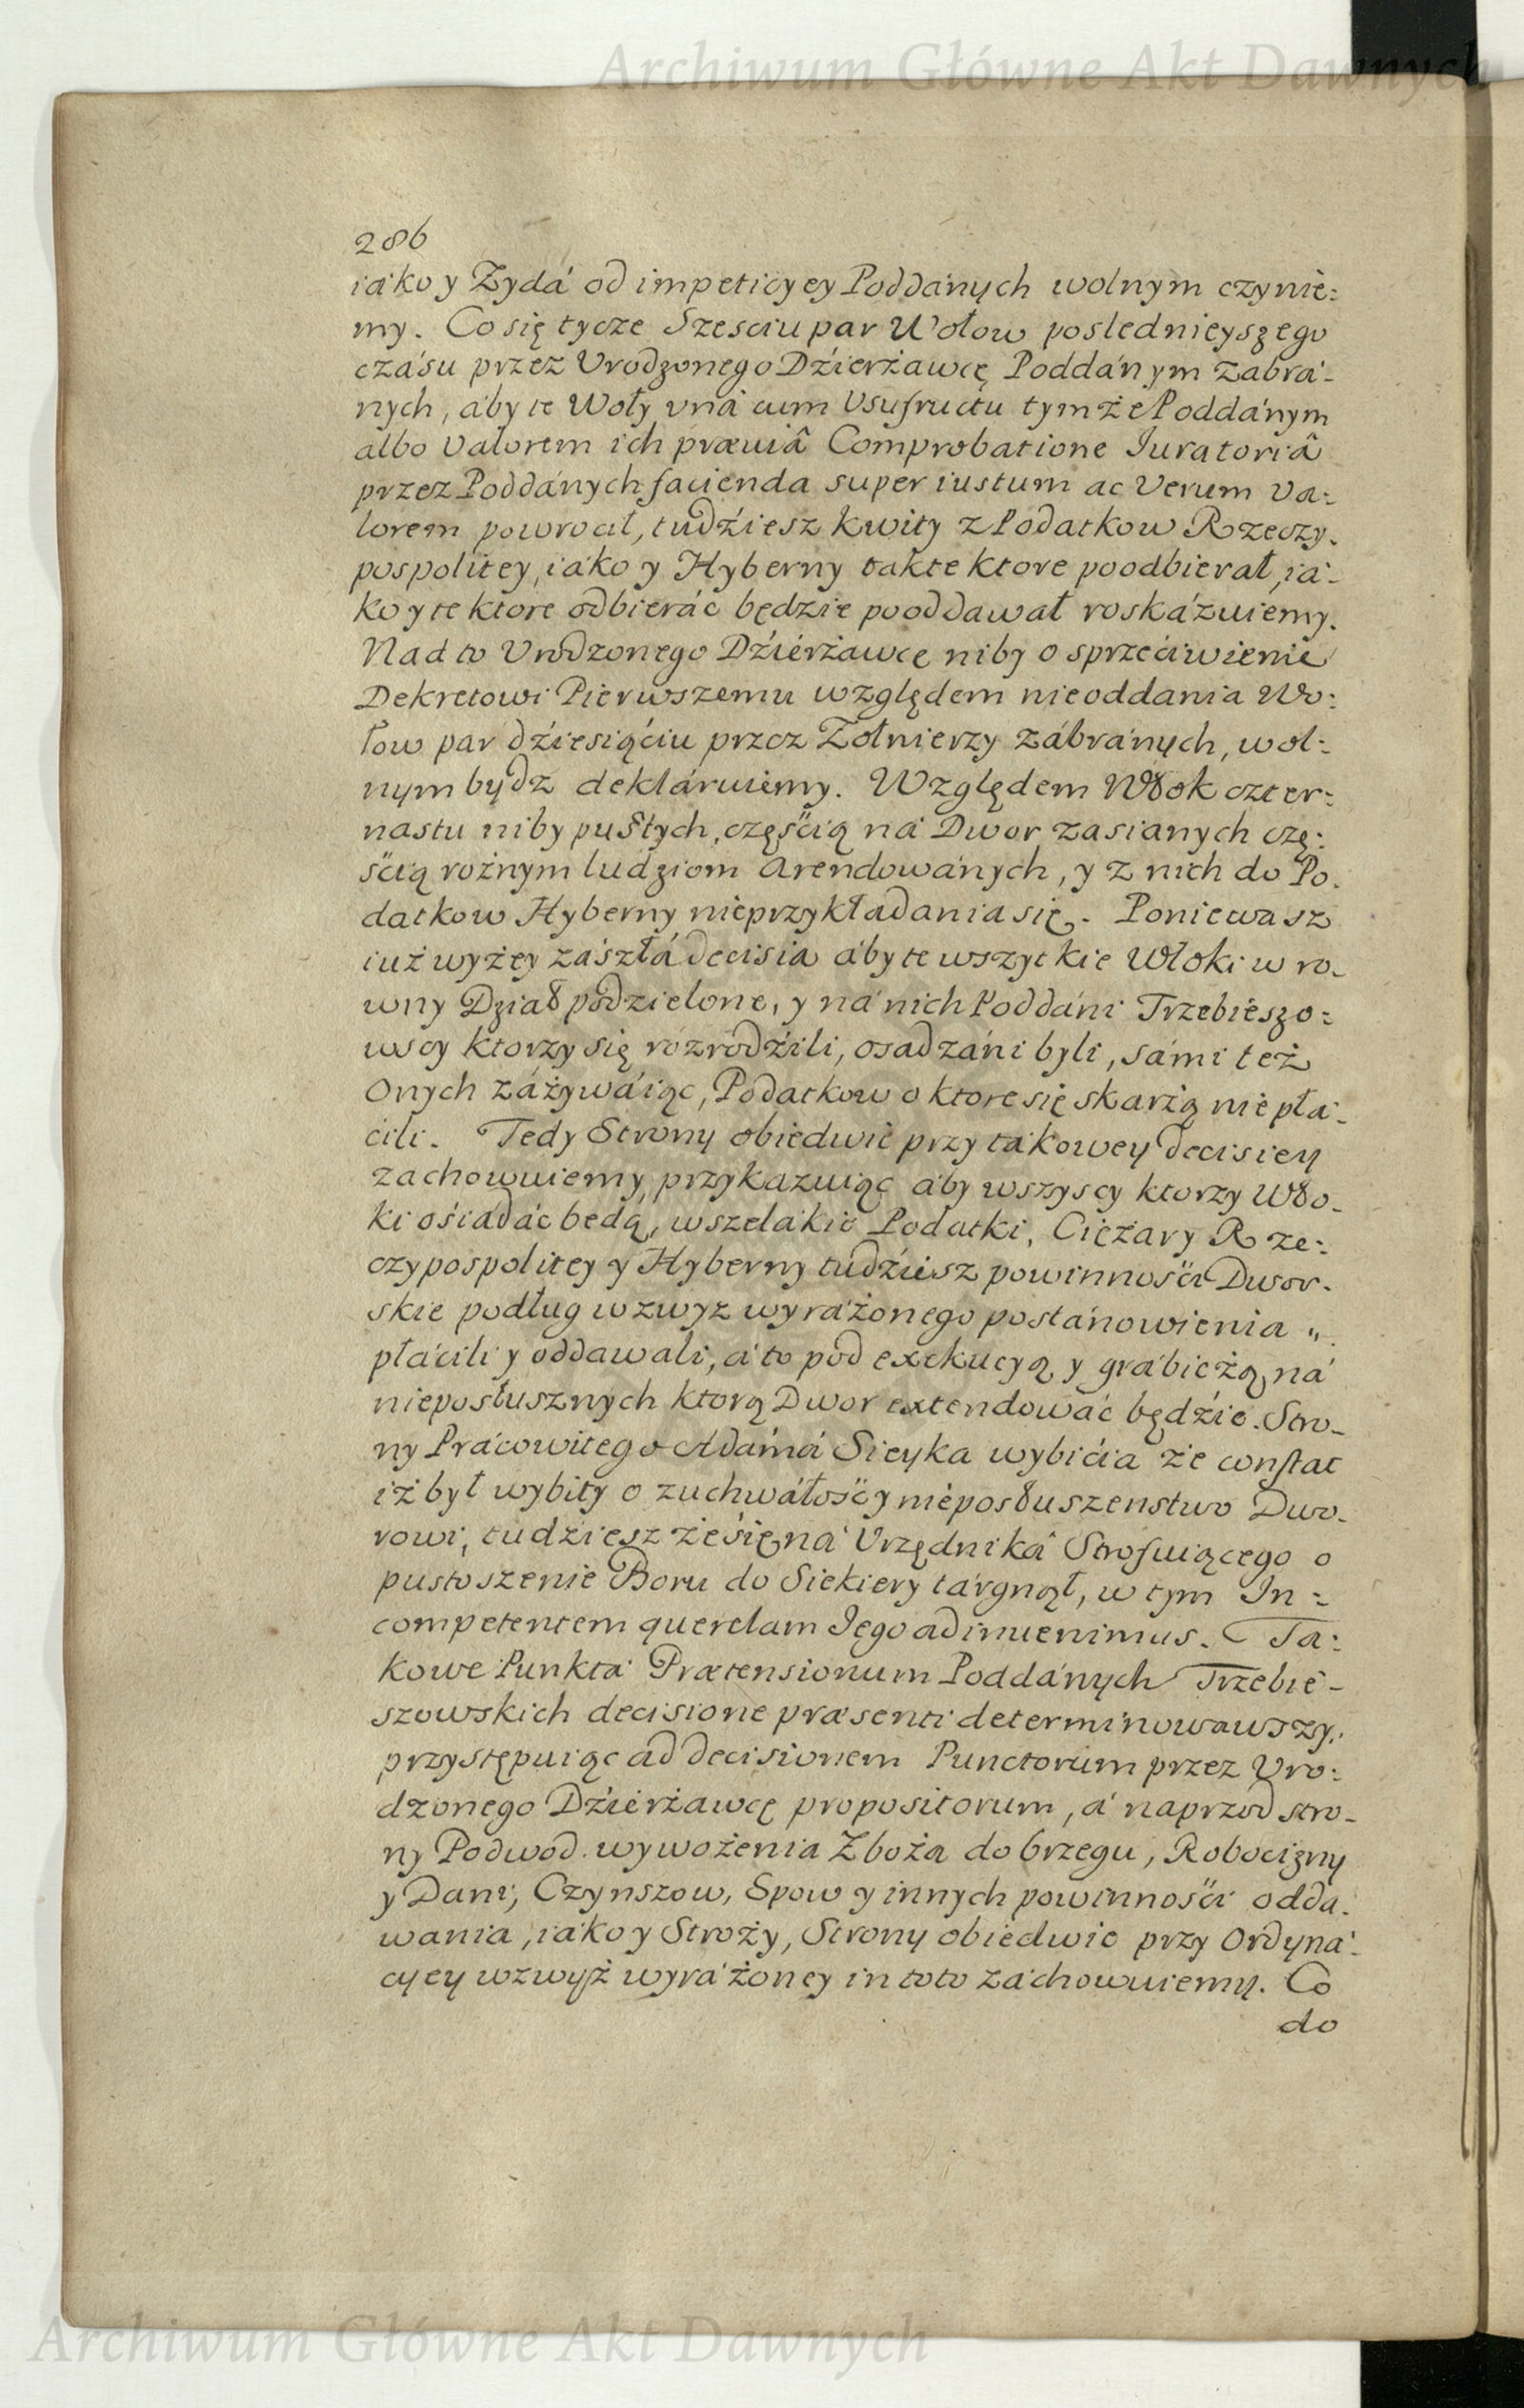 Archiwum Główne Akt Dawnych
286
iáko y Zydá od impeticyey Poddánych wolnym czynie:
my. Co się tycze Szesciu par Wołow poslednieyszego
czásu przez Vrodzonego Dźierżawcę Poddánym zabrá-
nych, áby te Woły vná cum Vsufructu tymże Poddánym
albo Valorem ich præuiâ Comprobatione Iuratoriâ
przez Poddánych facienda super iustum ac Verum Va:
lorem powrocił, tudźiesz kwity z Podatkow Rzeczy.
pospolitey, iáko y Hyberny takte ktore poodbierał, iá-
ko y te ktore odbieráć będzie pooddawał roskázuiemy.
Nad to Vrodzonego Dźierżawcę niby o sprzeciwienie
Dekretowi Pierwszemu względem nieoddania Wo:
łow par dźiesięćiu przez Zołnierzy zábránych, wol:
nym bydz deklaruiemy. Względem Włok czter:
nastu niby pustych, częścią ná Dwor zasianych czę:
ścią rożnym ludziom Arendowánych, y z nich do Po.
datkow Hyberny nieprzykładania się. Poniewasz
iuż wyżey zászłá decisia áby te wszytkie Włoki w ro-
wny Dział podzielone, y ná nich Poddáni Trzebieszo:
wscy ktorzy się rozrodźili, osadzáni byli, sámi też
Onych záżywáiąc, Podatkow o ktore się skarżą nie płá-
cili. Tedy Strony obiedwie przy tákowey decisiey
zachowuiemy, przykazuiąc áby wszyscy ktorzy Wło-
ki ośiádáć będą, wszelákie Podatki, Ciężary Rze:
czypospolitey y Hyberny tudźiesz powinności Dwor.
skie podług wzwyz wyráżonego postánowienia "
płácili y oddawali, á to pod exekucyą y grábieżą ná
nieposłusznych ktorą Dwor extendowáć będźie. Stro-
ny Prácowitego Adámá Sieyka wybićia że constat
iż był wybity o zuchwáłość y nieposłuszenstwo Dwo-
rowi, tudziesz że się ná Vrzędniká Strofuiącego o
pustoszenie Boru do Siekiery tárgnął, w tym In:
competentem querelam Iego adinuenimus. Ta:
kowe Punktá Prætensionum Poddánych Trzebie-
szowskich decisione præsenti determinowawszy,
przystępuiąc ad decisionem Punctorum przez Vro:
dzonego Dźierżawcę propositorum, á naprzod stro-
ny Podwod wywożenia Zboża do brzegu, Robocizny
y Dani, Czynszow, Spow y innych powinności odda.
wania, iáko y Stroży, Strony obiedwie przy Ordyná-
cyey wzwyż wyráżoney in toto záchowuiemy. Co
do
Archiwum Główne Akt Dawnych